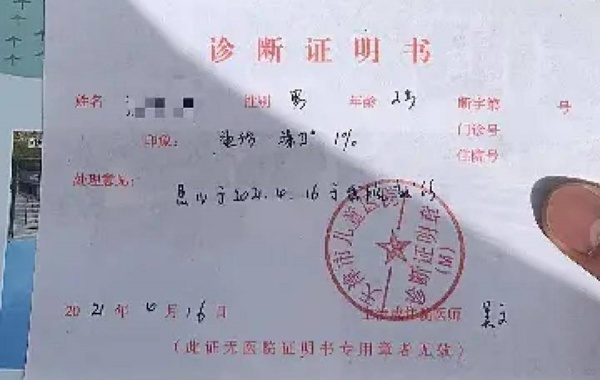 诊断证明书
姓名 性别 男 年龄 2岁 断字第 号
门诊号
印象： 烫伤 深Ⅱ° 1%
住院号
处理意见：
患儿于2021.4.16于我院
天津市儿童医院
诊断证明章
2021年4月16日 主治或住院医师
（此证无医院证明书专用章者无效）